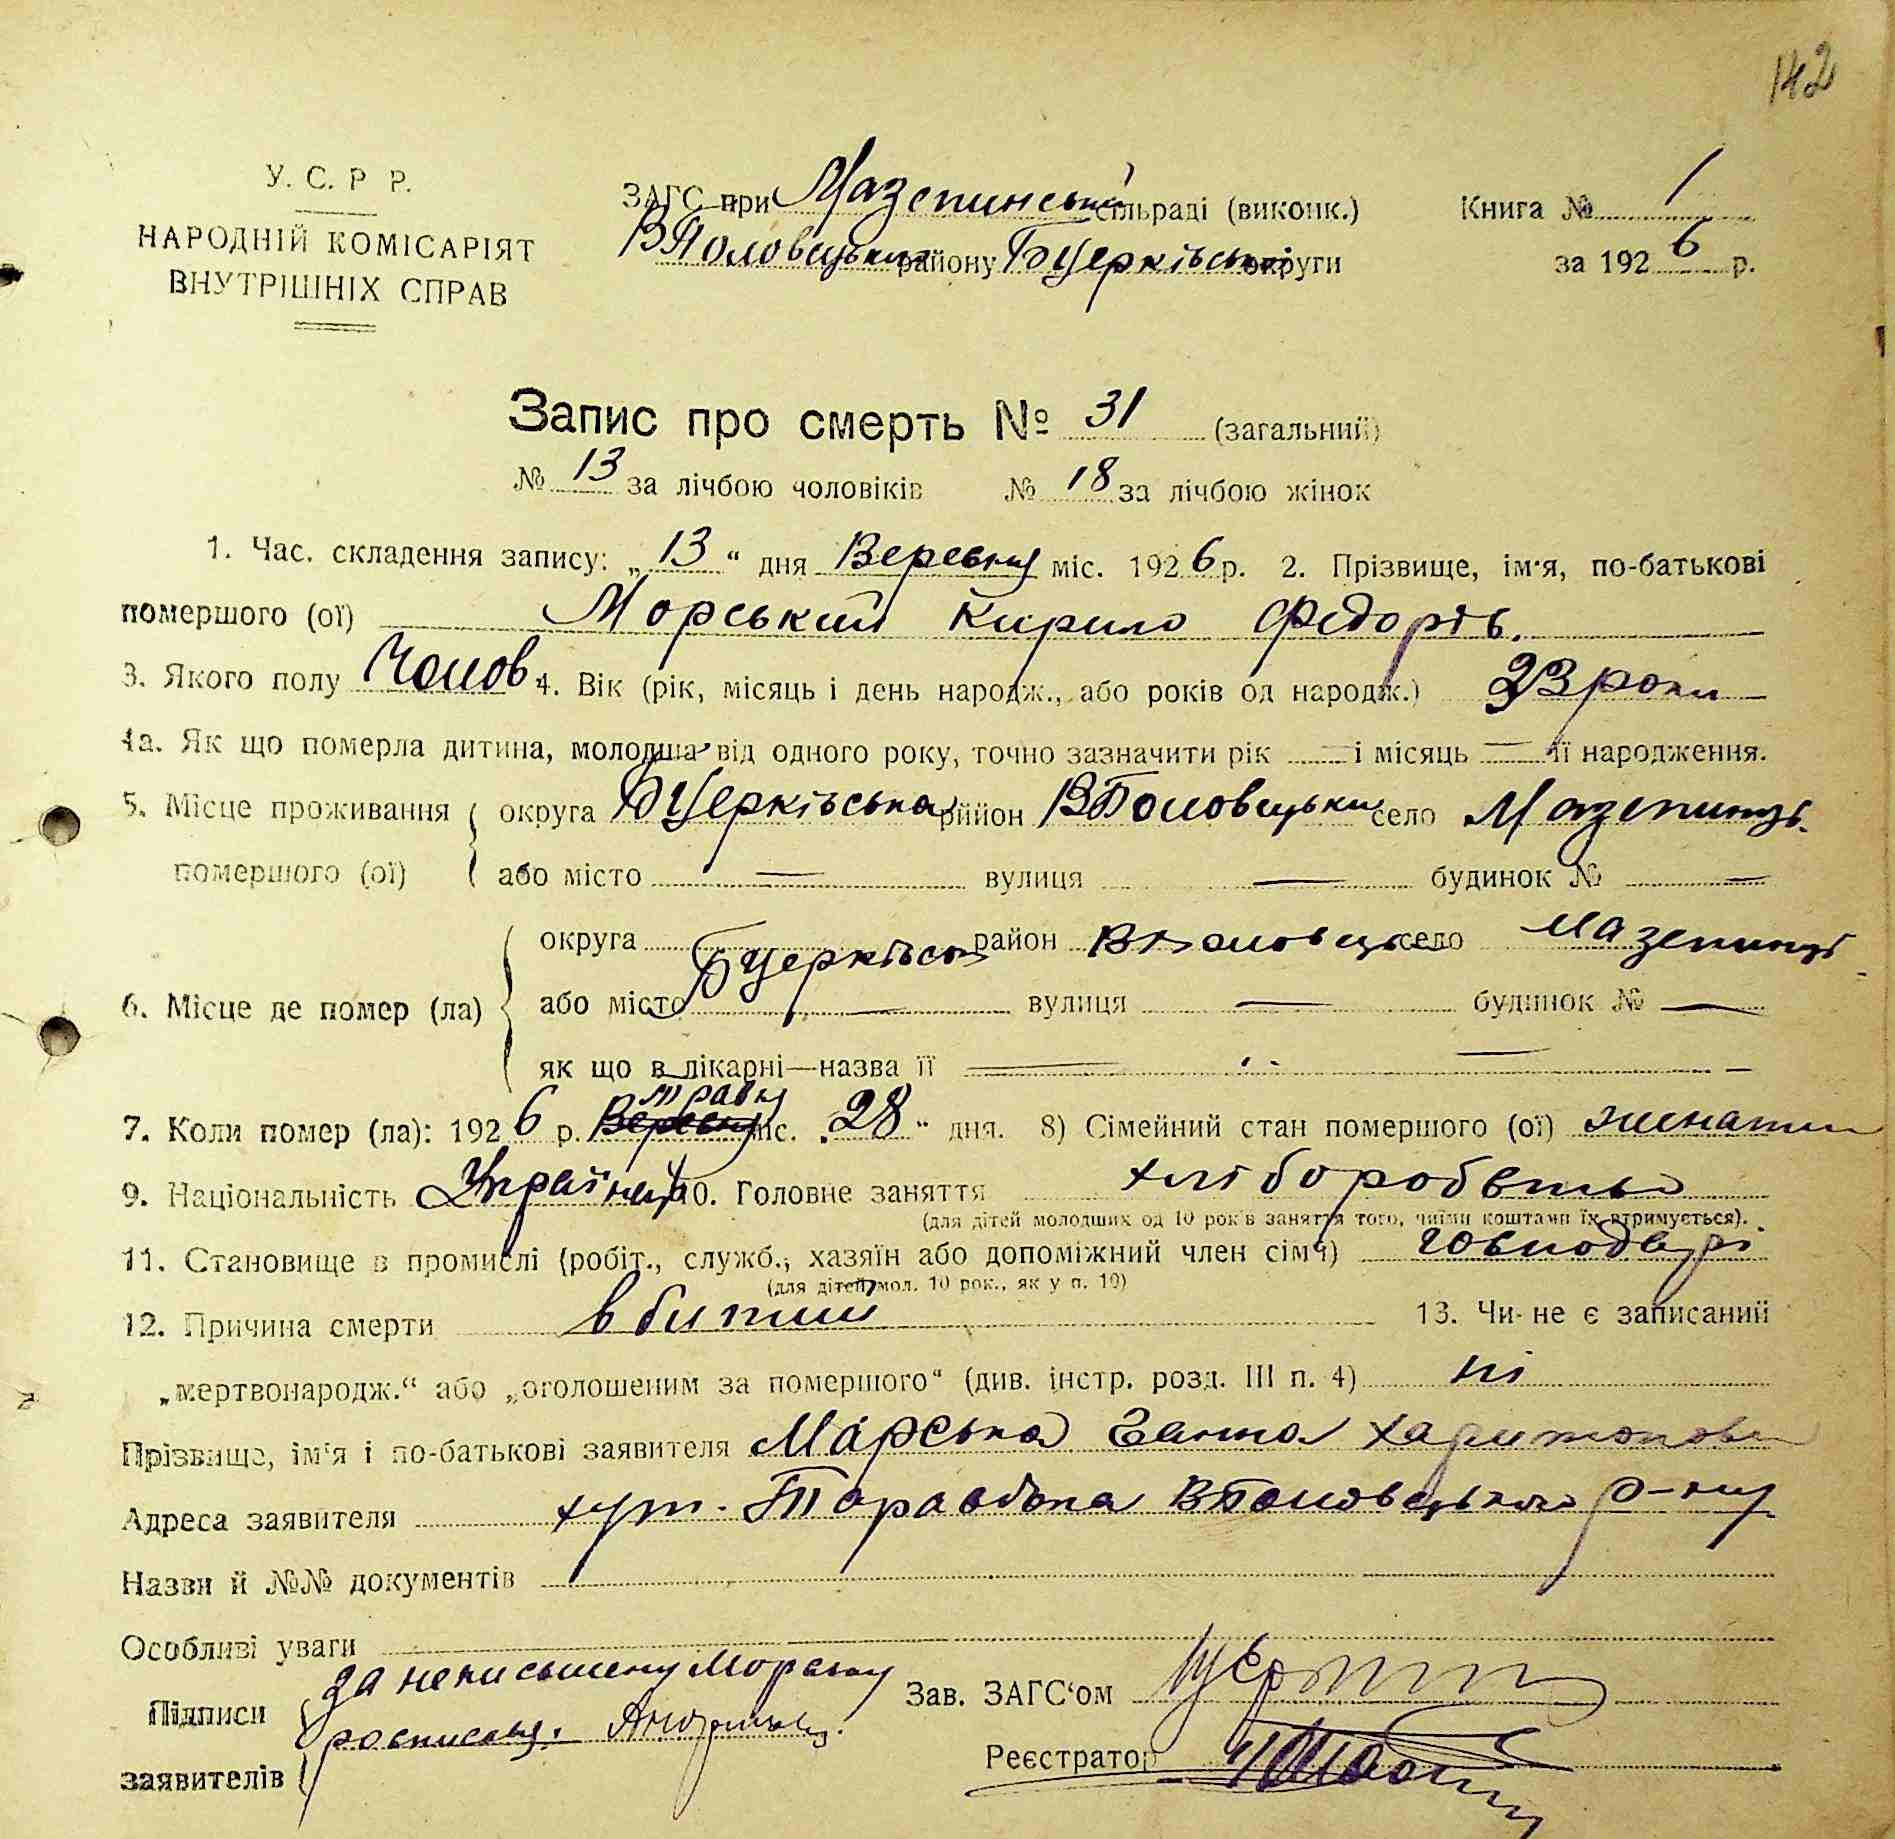 142
У. С. Р Р.
НАРОДНІЙ КОМІСАРІЯТ
ВНУТРІШНІХ СПРАВ
ЗАГС при Мазепинській сільраді (виконк.)
ВПоловецьким району БЦерківської округи
Книга № 1
за 1926 р.
Запис про смерть № 31 (загальний)
№ 13 за лічбою чоловіків № 18 за лічбою жінок
1. Час. складення запису: „13“ дня Вересня міс. 1926 р. 2. Прізвище, ім'я, по-батькові
помершого (ої) Морський Кирило Федорів.
3. Якого полу Чолов. 4. Вік (рік, місяць і день народж., або років од народж.) 23 роки
4а. Як що померла дитина, молодша від одного року, точно зазначити рік — і місяць — її народження.
5. Місце проживання помершого (ої) округа БЦерківська район ВПоловецьки село Мазепинці.
або місто — вулиця — будинок № —
6. Місце де помер (ла) округа БЦерківськ район ВПоловецьк село Мазепинці
або місто — вулиця — будинок № —
як що в лікарні—назва її —
7. Коли помер (ла): 1926 р. Вересня травня міс. „28“ дня. 8) Сімейний стан помершого (ої) жинатий
9. Національність Українец 10. Головне заняття хліборобство
(для дітей молодших од 10 років заняття того, чиїми коштами їх втримується).
11. Становище в промислі (робіт., служб., хазяїн або допоміжний член сім'ї) господарі
(для дітей мол. 10 рок., як у п. 10)
12. Причина смерти вбитий 13. Чи не є записаний
„мертвонародж.“ або „оголошеним за помершого“ (див. інстр. розд. III п. 4) ні
Прізвище, ім'я і по-батькові заявителя Марська Ганна Харитонова
Адреса заявителя хут. ВПоловецького р-ну
Назви й №№ документів
Особливі уваги
Підписи заявителів за неписьмену Морську
росписався.
Зав. ЗАГС'ом
Реєстратор